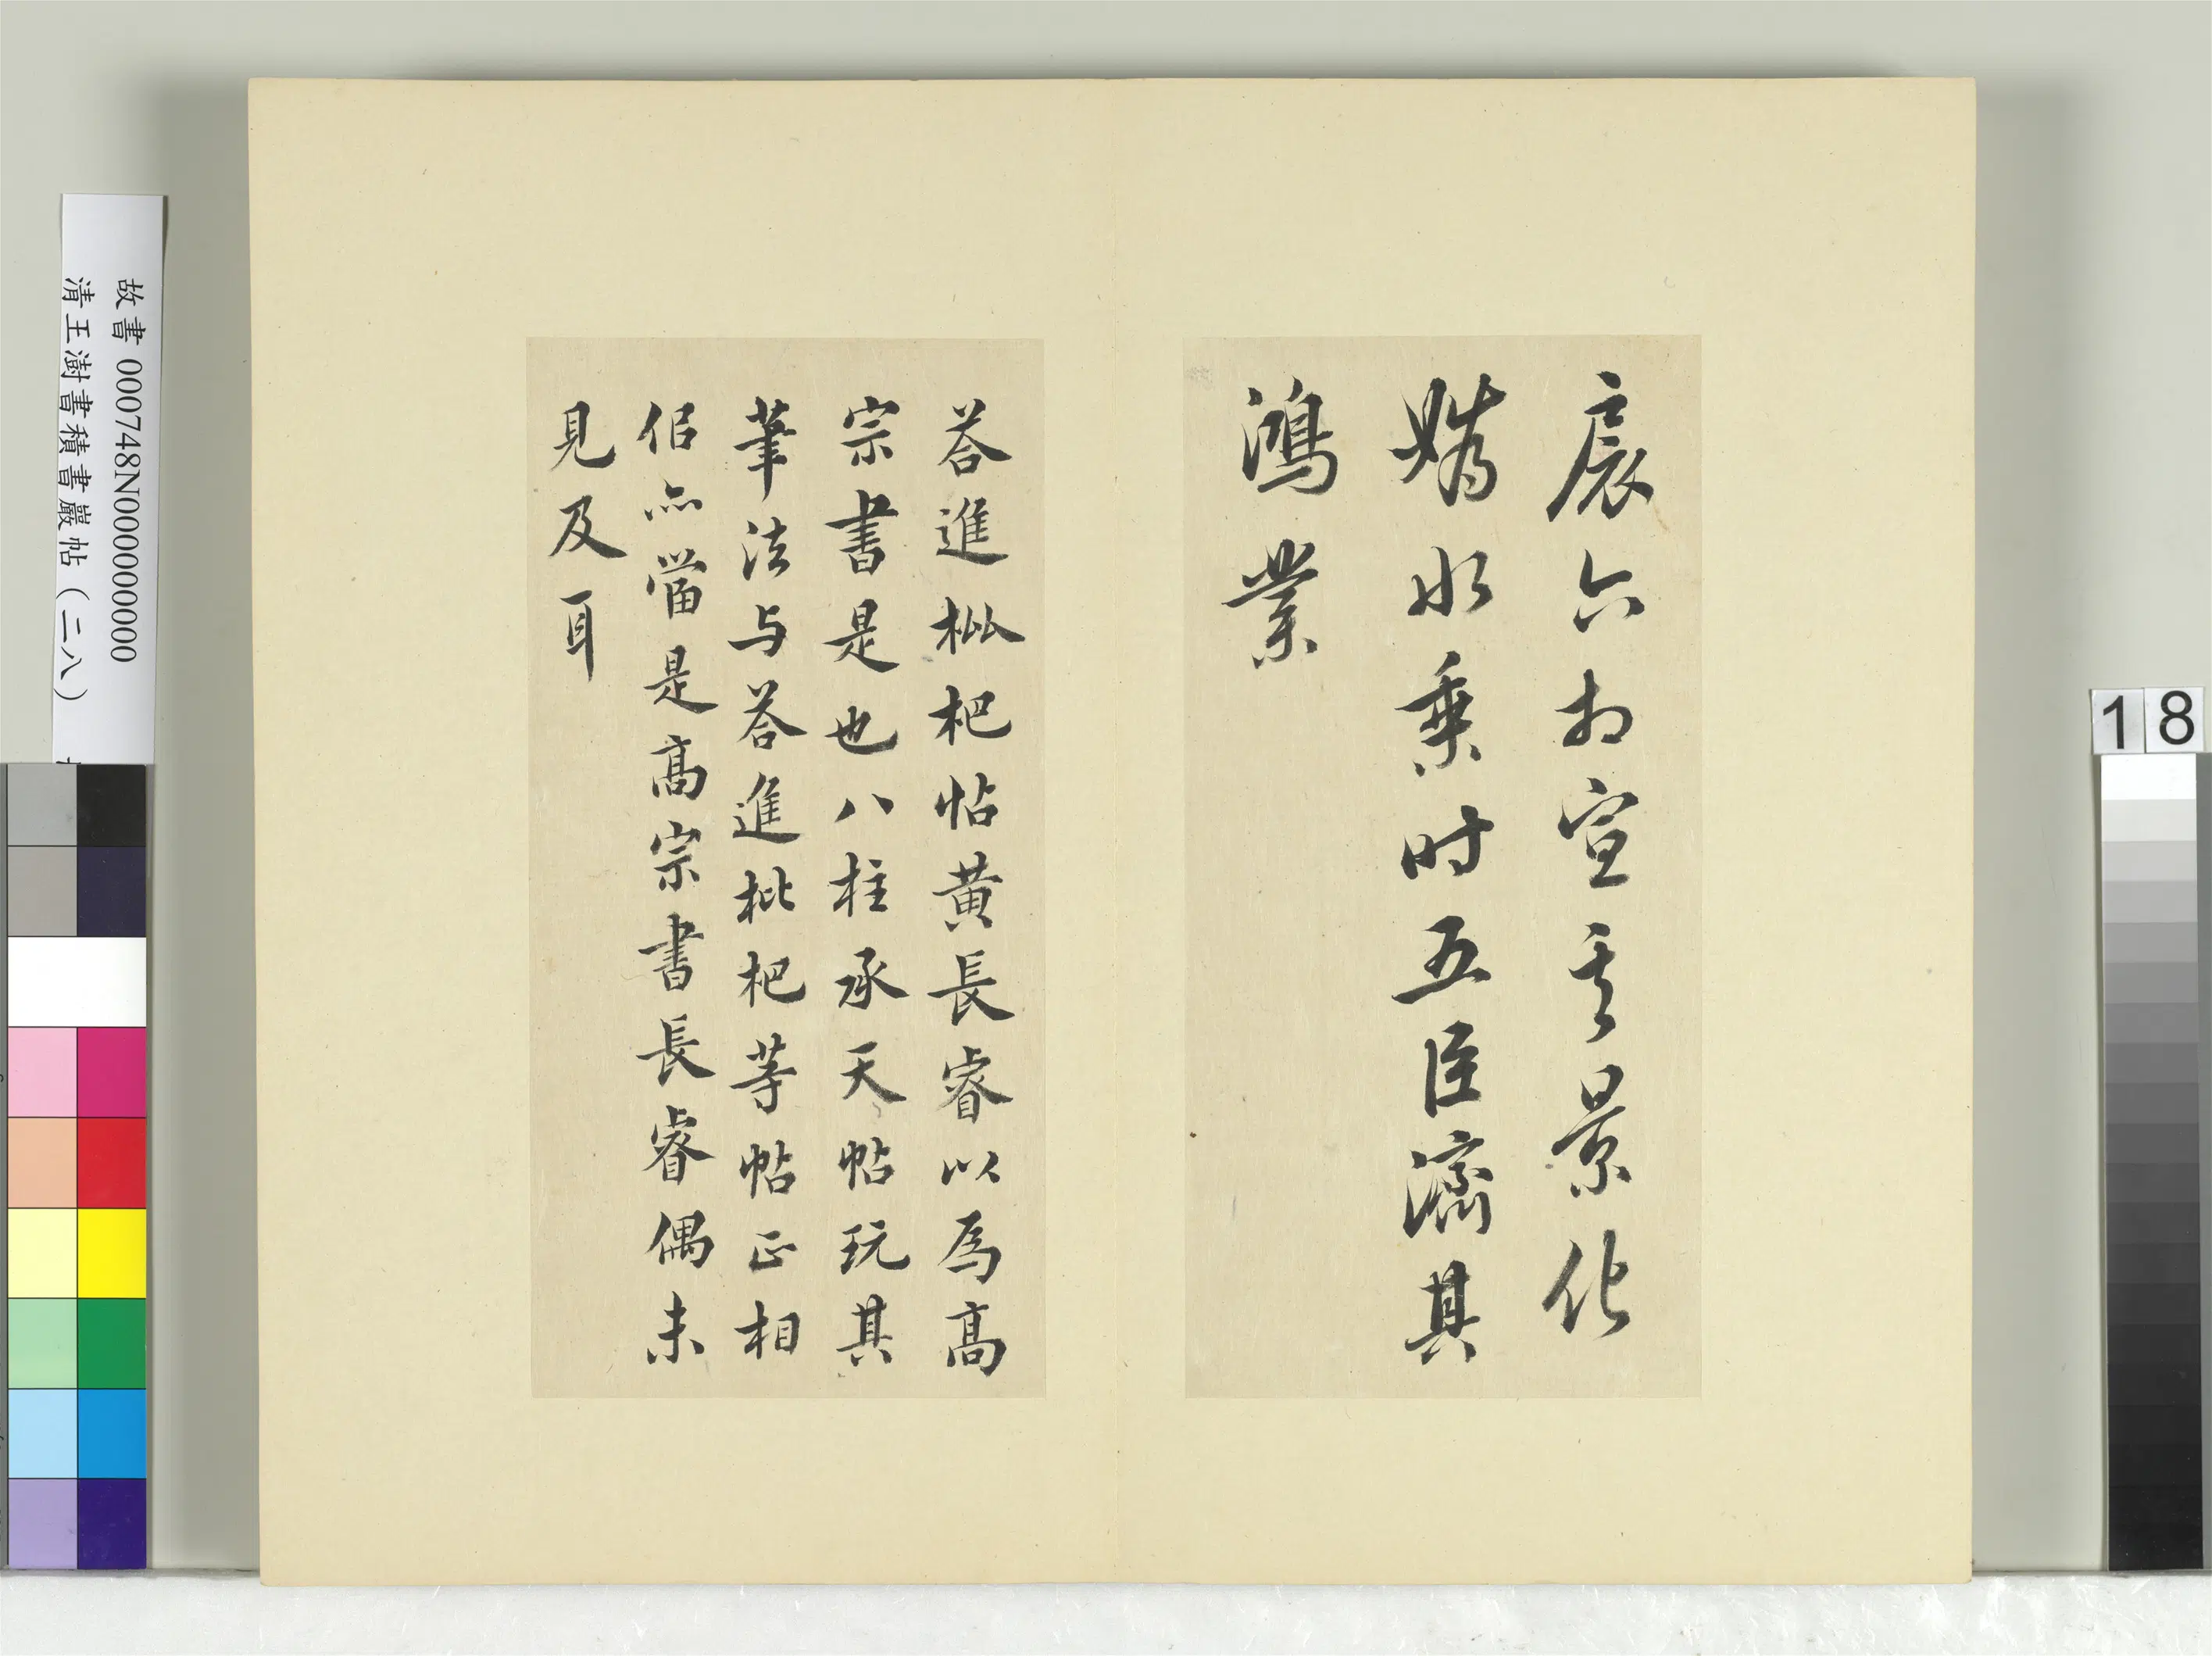 扆六相宣其景化
媯水乘时五臣濟其
鴻業
荅進枇杷帖黄長睿以為高
宗書是也八柱承天帖玩其
筆法与荅進枇杷等帖正相
佀亦當是高宗書長睿偶未
見及耳
故書 000748N000000000
清王澍書積書巖帖（二八）
18